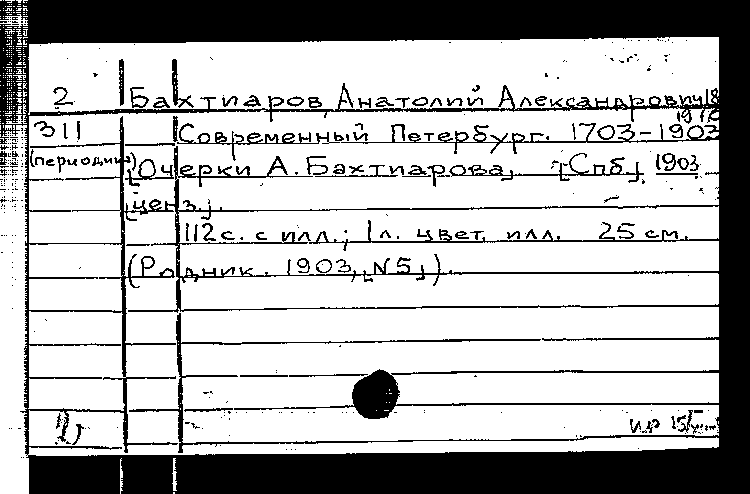 2 Бахтиаров, Анатолий Александрович 18
311 Современный Петербург. 1703-1903
(периодика) [Очерки А. Бахтиарова] [Спб] 1903
[ценз.].
112 с. с илл.; 1 л. цвет. илл. 25 см.
(Родник. 1903, [N5]).